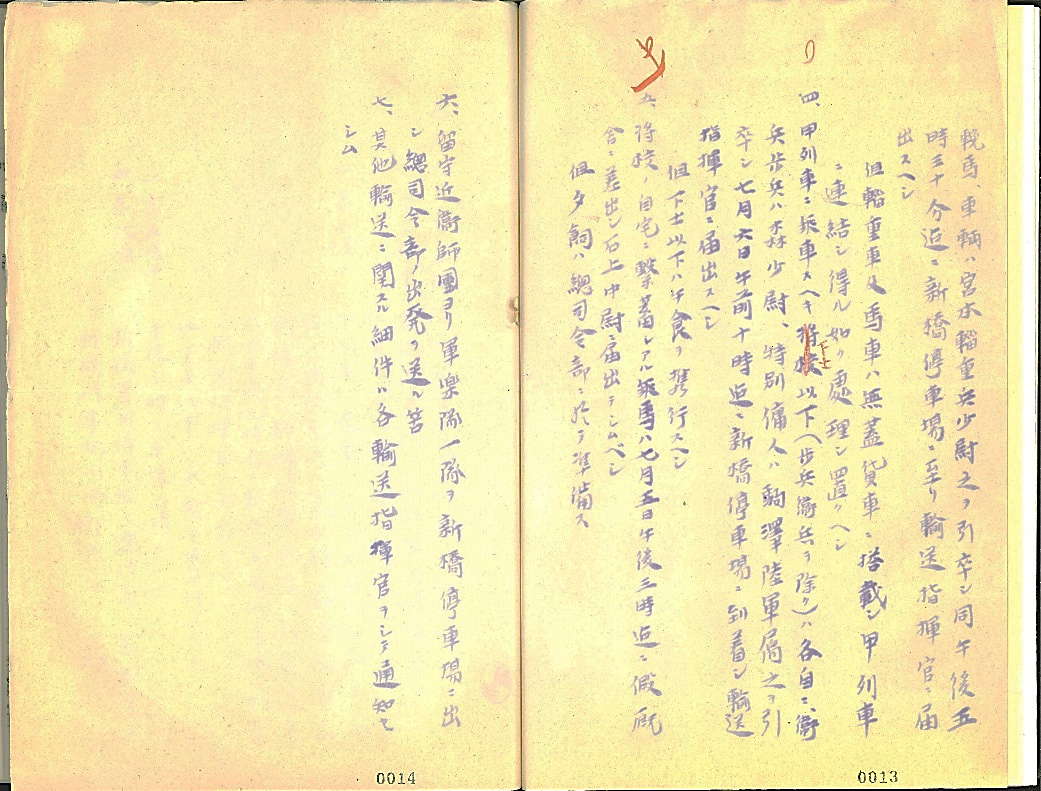 輓馬、車輛ハ宮本輜重兵少尉之ヲ引率シ同午後五
時三十分迄ニ新橋停車場ニ至リ輸送指揮官ニ届
出スヘシ
但輜重車及馬車ハ無蓋貨車ニ搭載シ甲列車
ニ連結シ得ル如ク處理シ置クヘシ
四、甲列車ニ乘車スヘキ將校以下(歩兵衞兵ヲ除ク)ハ各自ニ、衞
下士
兵歩兵ハ森少尉、特別傭人ハ駒澤陸軍屬之ヲ引
率シ七月六日午前十時迄ニ新橋停車場ニ到着シ輸送
指揮官ニ届出スヘシ
但下士以下ハ午食ヲ携行スヘシ
五、將校ノ自宅ニ繋畜シアル乘馬ハ七月五日午後三時迄ニ假厩
舎ニ差出シ石上中尉ニ届出テシムヘシ
但夕飼ハ總司令部ニ於テ準備ス
0013
六、留守近衞師團ヨリ軍樂隊一隊ヲ新橋停車場ニ出
シ總司令部ノ出発ヲ送ル筈
七、其他輸送ニ関スル細件ハ各輸送指揮官ヲシテ通知セ
シム
0014